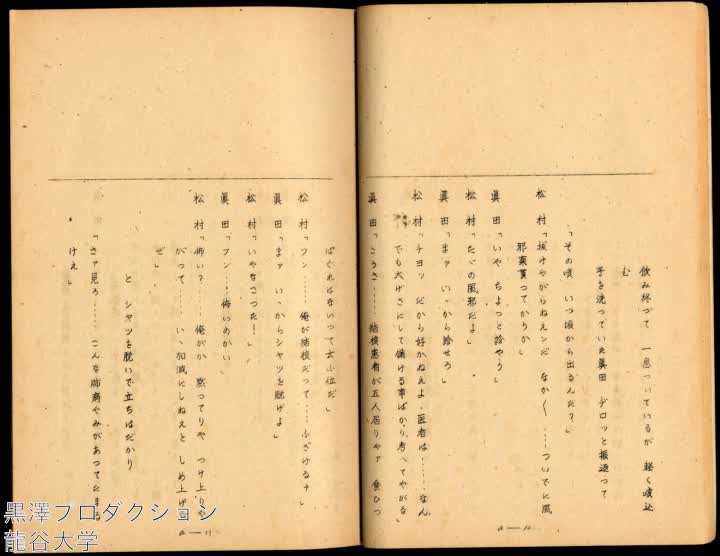 飲み終って 一息ついているが 軽く咳込
む
手を洗っていた眞田 ヂロッと振返って
「その咳 いつ頃から出るんだ？」
松村「抜けやがらねえンだ なか〱……ついでに風
邪薬貰ってかうか」
眞田「いや ちょっと診やう」
松村「たゞの風邪だよ」
眞田「まァ いゝから診せろ」
松村「チヨッ だから好かねえよ、医者は……なん
でも大げさにして儲ける事ばかり考へてやがる」
眞田「さうさ……結核患者が五人居りやァ 食ひっ
ぱぐれはないって云ふ位だ」
松村「フン……俺が結核だって……ふざけるナ」
眞田「まァ いゝからシャツを脱げよ」
松村「いやなこつた！」
眞田「フン……怖いのかい」
松村「怖い？……俺がか 黙ってりや つけ上りや
がって……いゝ加減にしねえと しめ上げ
ぜ」
と シャツを脱いで立ちはだかり
「さァ見ろ……こんな肺病やみがあつてたまる
けえ」
A—10
A—11
黒澤プロダクション
龍谷大学